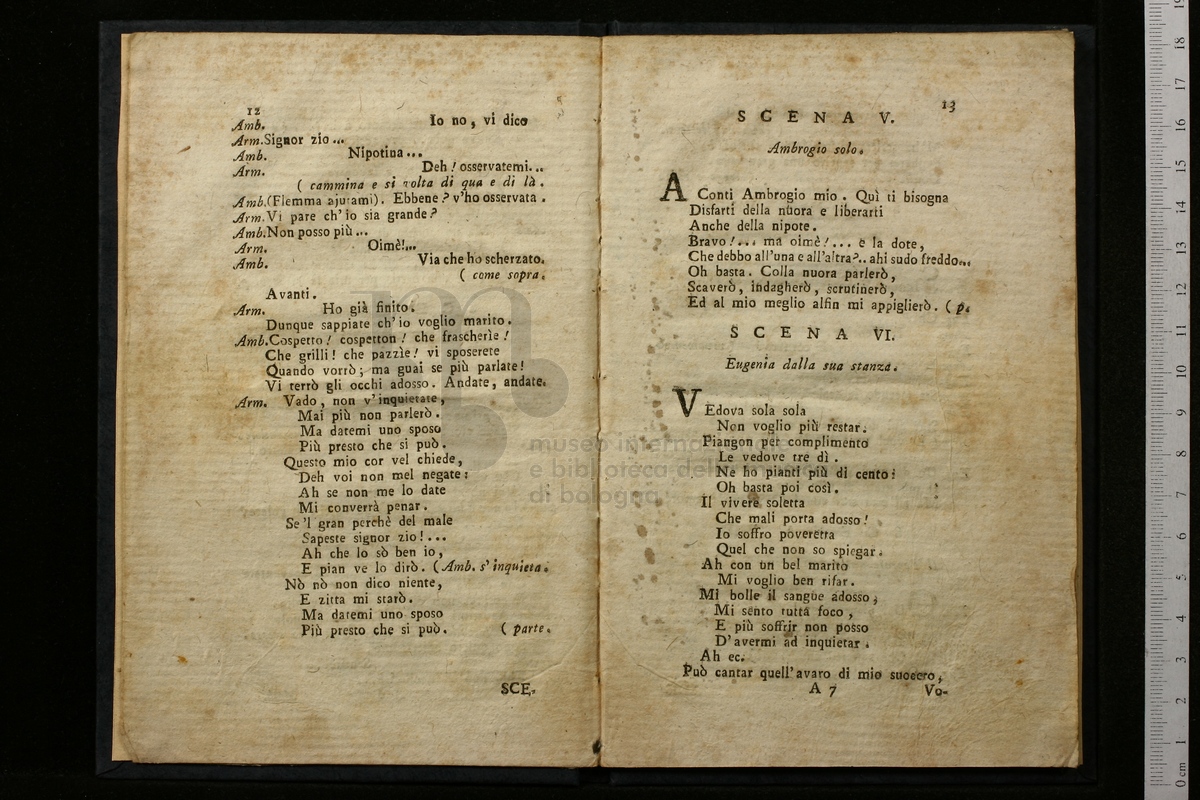 12
Amb. Io no, vi dico
Arm. Signor zio...
Amb. Nipotina...
Arm. Deh! osservatemi...
( cammina e si volta di qua e di là.
Amb. (Flemma ajutami). Ebbene? v'ho osservata.
Arm. Vi pare ch'io sia grande?
Amb. Non posso più...
Arm. Oimè!...
Amb. Via che ho scherzato.
( come sopra.
Avanti.
Arm. Ho già finito.
Dunque sappiate ch'io voglio marito.
Amb. Cospetto! cospetton! che frascherìe!
Che grilli! che pazzìe! vi sposerete
Quando vorrò; ma guai se più parlate!
Vi terrò gli occhi adosso. Andate, andate.
Arm. Vado, non v'inquietate,
Mai più non parlerò.
Ma datemi uno sposo
Più presto che si può.
Questo mio cor vel chiede,
Deh voi non mel negate:
Ah se non me lo date
Mi converrà penar.
Se 'l gran perchè del male
Sapeste signor zio!...
Ah che lo sò ben io,
E pian ve lo dirò. ( Amb. s'inquieta.
Nò nò non dico niente,
E zitta mi starò.
Ma datemi uno sposo
Più presto che si può. ( parte.
SCE-
13
SCENA V.
Ambrogio solo.
A Conti Ambrogio mio. Quì ti bisogna
Disfarti della nuora e liberarti
Anche della nipote.
Bravo!... ma oimè!... e la dote,
Che debbo all'una e all'altra?.. ahi sudo freddo...
Oh basta. Colla nuora parlerò,
Scaverò, indagherò, scrutinerò,
Ed al mio meglio alfin mi appiglierò. ( p.
SCENA VI.
Eugenia dalla sua stanza.
VEdova sola sola
Non voglio più restar.
Piangon per complimento
Le vedove tre dì.
Ne ho pianti più di cento:
Oh basta poi così.
Il vivere soletta
Che mali porta adosso!
Io soffro poveretta
Quel che non so spiegar.
Ah con un bel marito
Mi voglio ben rifar.
Mi bolle il sangue adosso,
Mi sento tutta foco,
E più soffrir non posso
D'avermi ad inquietar.
Ah ec.
Può cantar quell'avaro di mio suocero,
A 7 Vo-
museo internazionale
e biblioteca della musica
di bologna